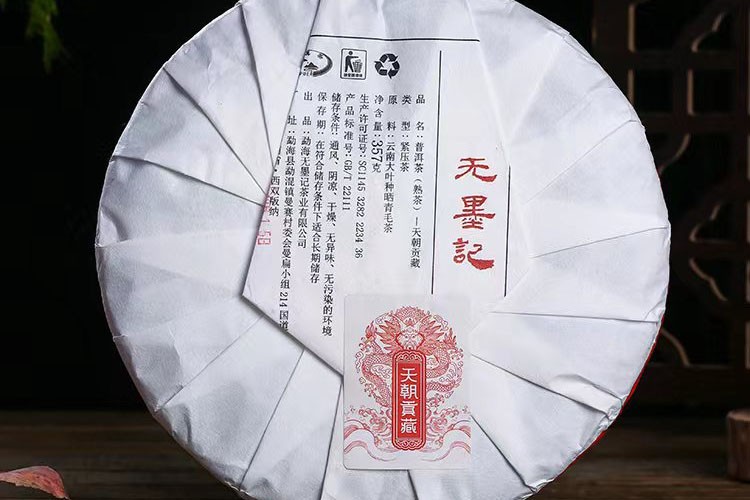 无墨記
品 名：普洱茶（熟茶）—天朝贡藏
类 型：紧压茶
原 料：云南大叶种晒青毛茶
净含量：357克
生产许可证号：SC1145 3282 2234 36
产品标准号：GB/T 22111
储存条件：通风、阴凉、干燥、无异味、无污染的环境
保 存 期：在符合储存条件下适合长期储存
出 品：勐海无墨记茶业有限公司
址：勐海县勐混镇曼赛村委会曼扁小组 214 国道
西双版纳
天朝貢藏